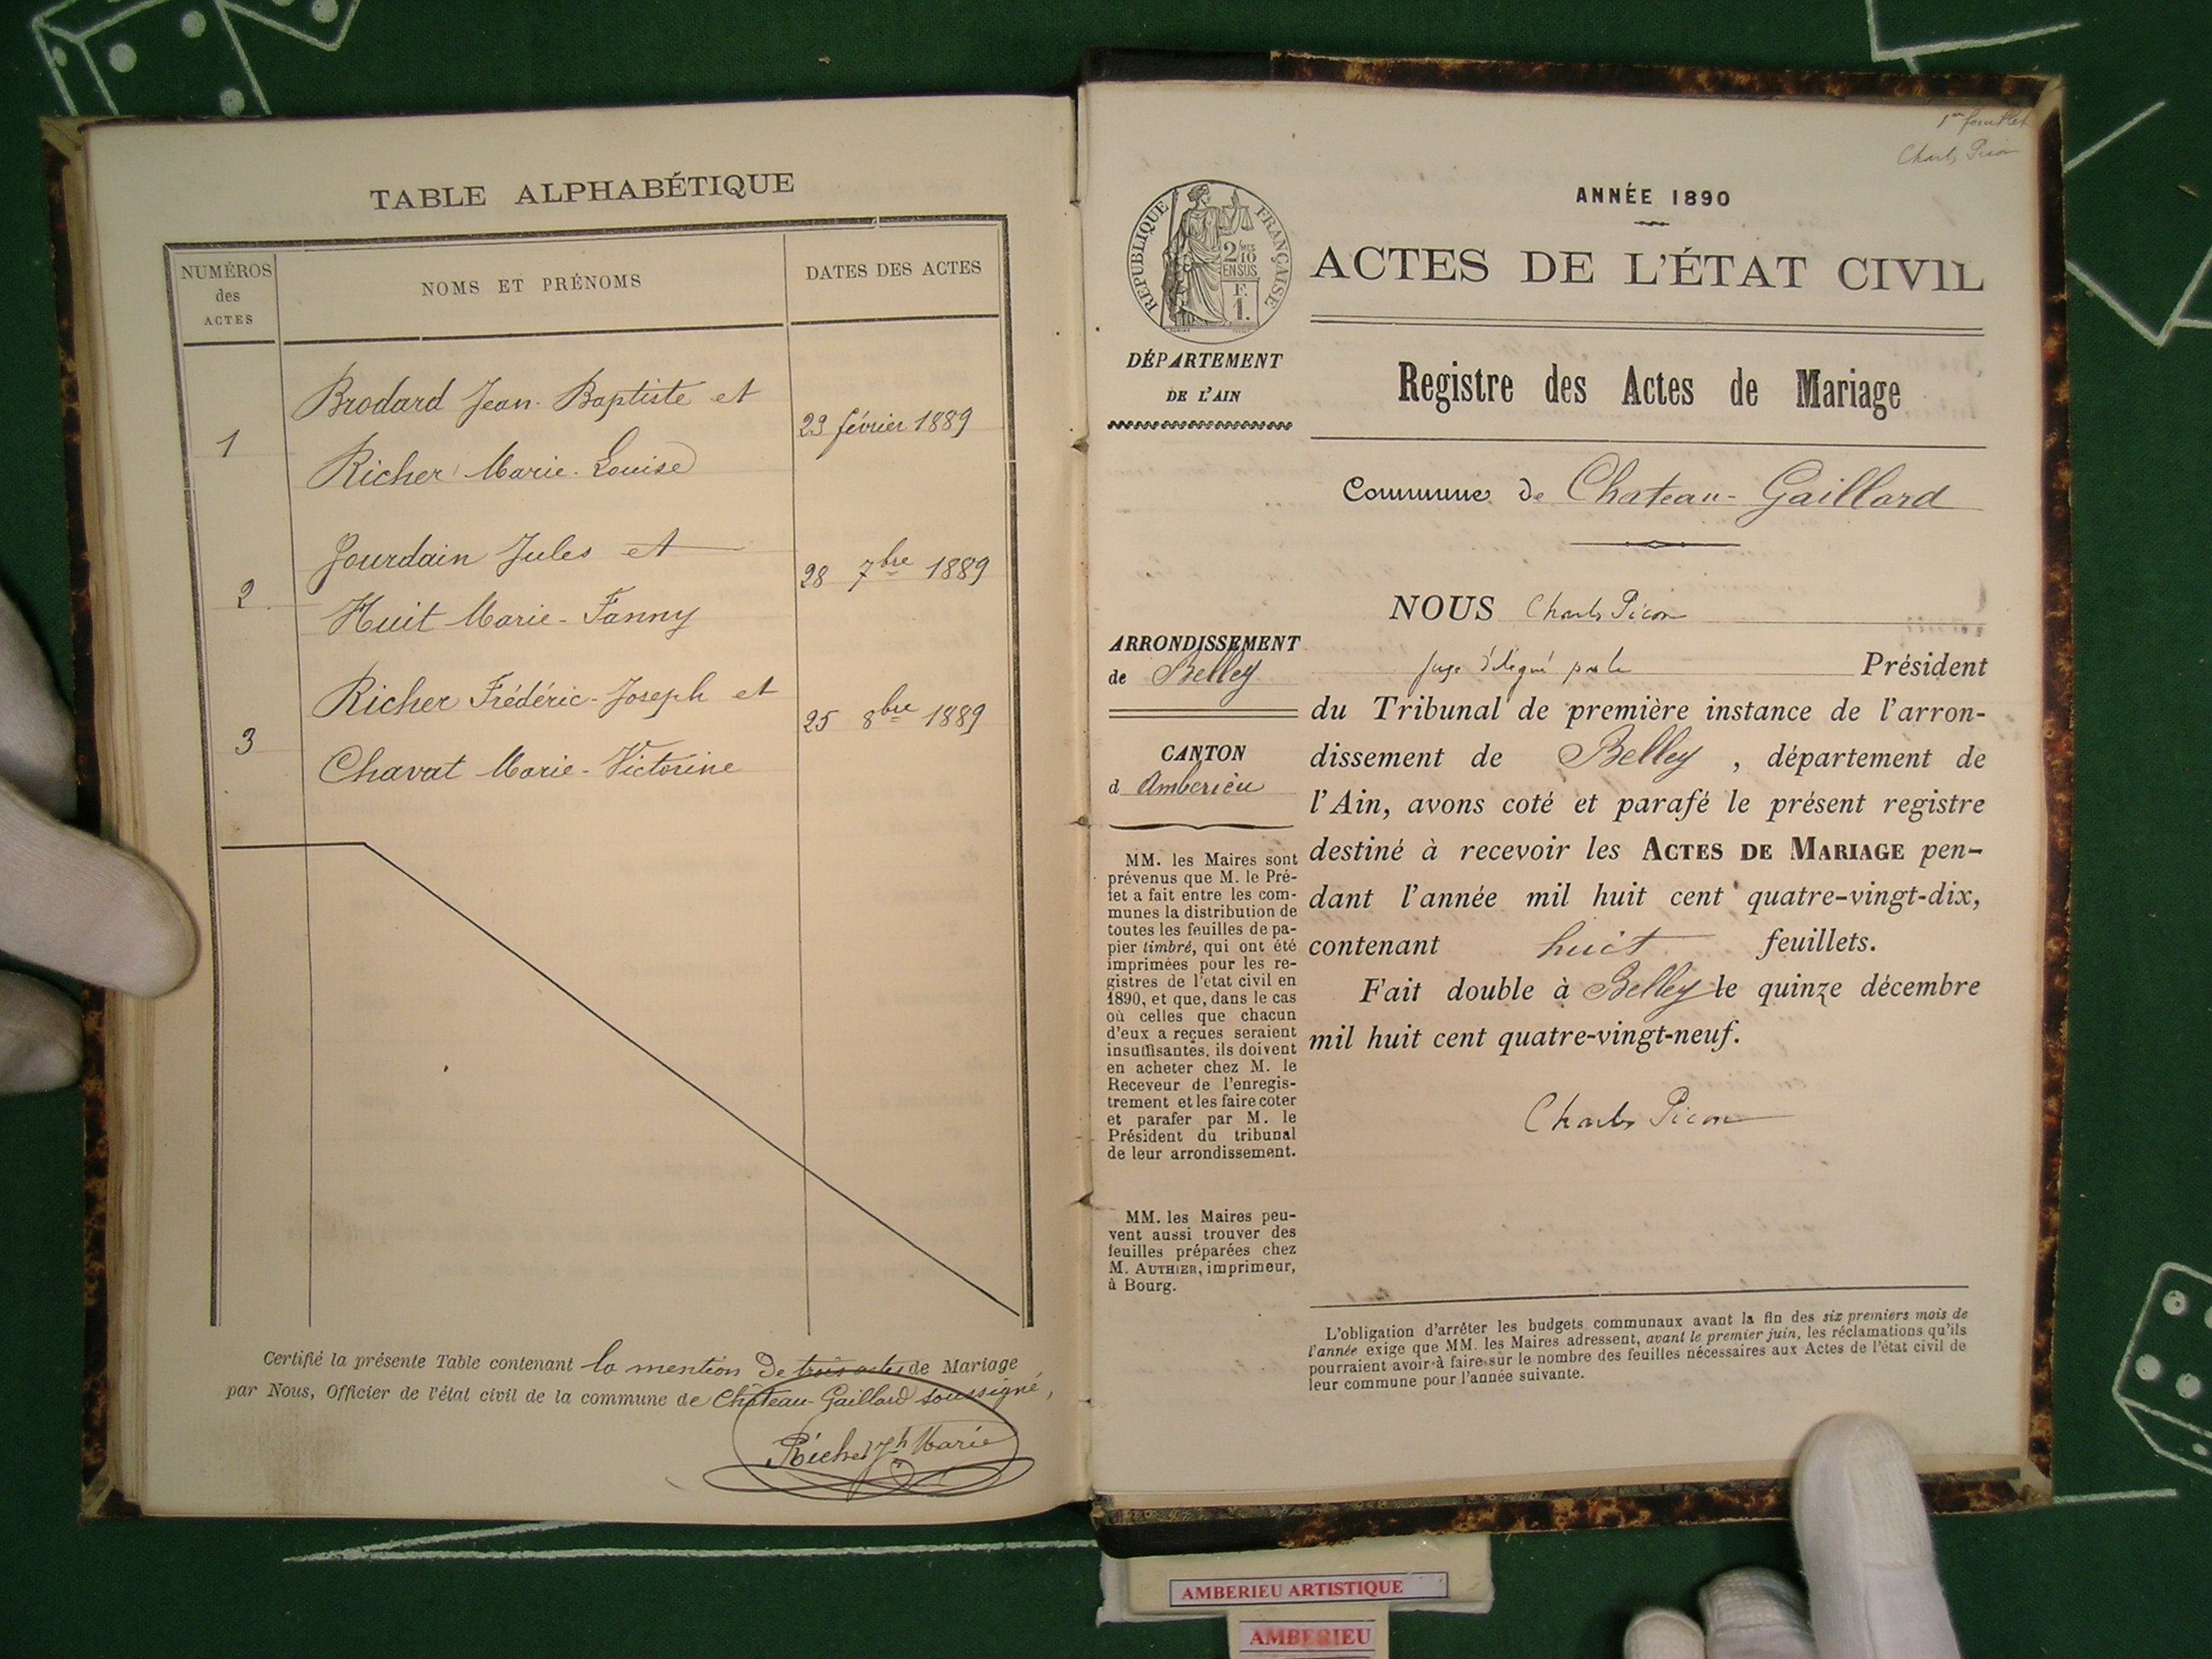 TABLE ALPHABÉTIQUE
NUMÉROS
des
ACTES
NOMS ET PRÉNOMS
DATES DES ACTES
1
Brodard Jean-Baptiste et
Richer Marie-Louise
23 février 1889
2
Jourdain Jules et
Huit Marie-Fanny
28 7bre 1889
3
Richer Frédéric-Joseph et
Chavat Marie-Victorine
25 8bre 1889
Certifié la présente Table contenant la mention de trois actes de Mariage
par Nous, Officier de l'état civil de la commune de Château-Gaillard soussigné,
Richer Jh Marie
1er feuillet
Charles Picon
ANNÉE 1890
RÉPUBLIQUE FRANÇAISE
2 MES
10
EN SUS
F.
1.
ACTES DE L'ÉTAT CIVIL
DÉPARTEMENT
DE L'AIN
Registre des Actes de Mariage
Commune de Chateau-Gaillard
ARRONDISSEMENT
de Belley
CANTON
d Amberieu
MM. les Maires sont
prévenus que M. le Pré-
fet a fait entre les com-
munes la distribution de
toutes les feuilles de pa-
pier timbré, qui ont été
imprimées pour les re-
gistres de l'état civil en
1890, et que, dans le cas
où celles que chacun
d'eux a reçues seraient
insuffisantes, ils doivent
en acheter chez M. le
Receveur de l'enregis-
trement et les faire coter
et parafer par M. le
Président du tribunal
de leur arrondissement.
MM. les Maires peu-
vent aussi trouver des
feuilles préparées chez
M. AUTHIER, imprimeur,
à Bourg.
NOUS Charles Picon
juge délégué par le Président
du Tribunal de première instance de l'arron-
dissement de Belley , département de
l'Ain, avons coté et parafé le présent registre
destiné à recevoir les ACTES DE MARIAGE pen-
dant l'année mil huit cent quatre-vingt-dix,
contenant huit feuillets.
Fait double à Belley le quinze décembre
mil huit cent quatre-vingt-neuf.
Charles Picon
L'obligation d'arrêter les budgets communaux avant la fin des six premiers mois de
l'année exige que MM. les Maires adressent, avant le premier juin, les réclamations qu'ils
pourraient avoir à faire sur le nombre des feuilles nécessaires aux Actes de l'état civil de
leur commune pour l'année suivante.
AMBERIEU ARTISTIQUE
AMBERIEU